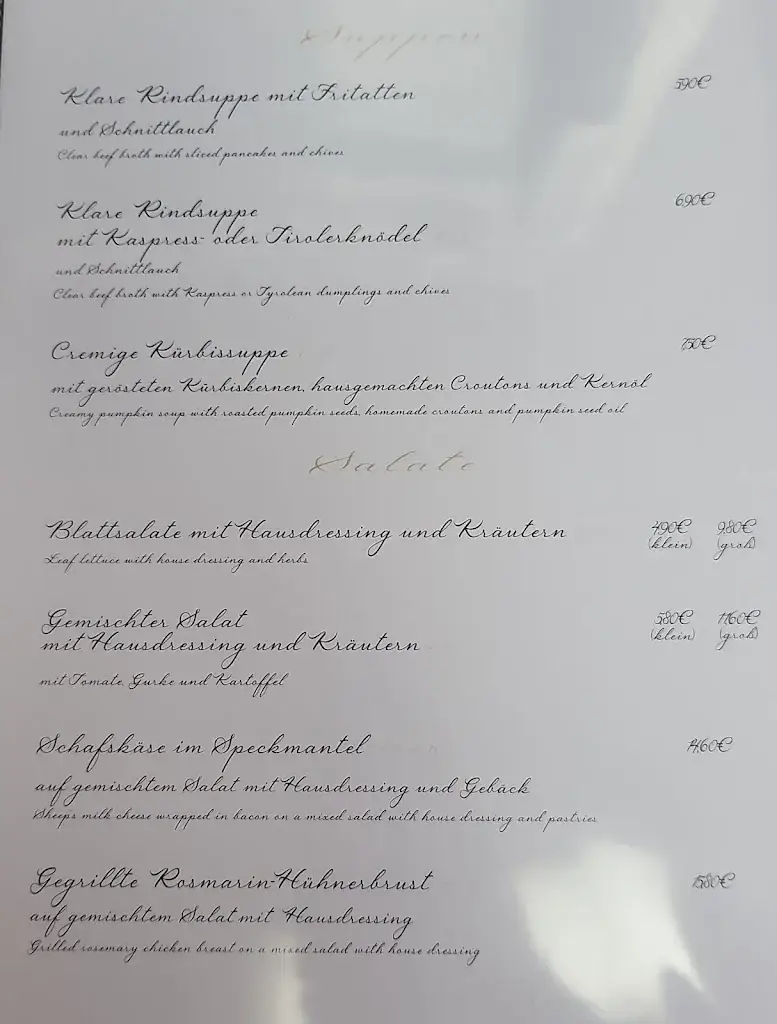 Suppen
Klare Rindsuppe mit Fritatten 5,90€
und Schnittlauch
Clear beef broth with sliced pancakes and chives
Klare Rindsuppe 6,90€
mit Kaspress- oder Tirolerknödel
und Schnittlauch
Clear beef broth with Kaspress or Tyrolean dumplings and chives
Cremige Kürbissuppe 7,50€
mit gerösteten Kürbiskernen, hausgemachten Croutons und Kernöl
Creamy pumpkin soup with roasted pumpkin seeds, homemade croutons and pumpkin seed oil
Salate
Blattsalate mit Hausdressing und Kräutern 4,90€ 9,80€
(klein) (groß)
Leaf lettuce with house dressing and herbs
Gemischter Salat 5,80€ 11,60€
mit Hausdressing und Kräutern (klein) (groß)
mit Tomate, Gurke und Kartoffel
Schafskäse im Speckmantel 14,60€
auf gemischtem Salat mit Hausdressing und Gebäck
Sheeps milk cheese wrapped in bacon on a mixed salad with house dressing and pastries
Gegrillte Rosmarin-Hühnerbrust 15,80€
auf gemischtem Salat mit Hausdressing
Grilled rosemary chicken breast on a mixed salad with house dressing